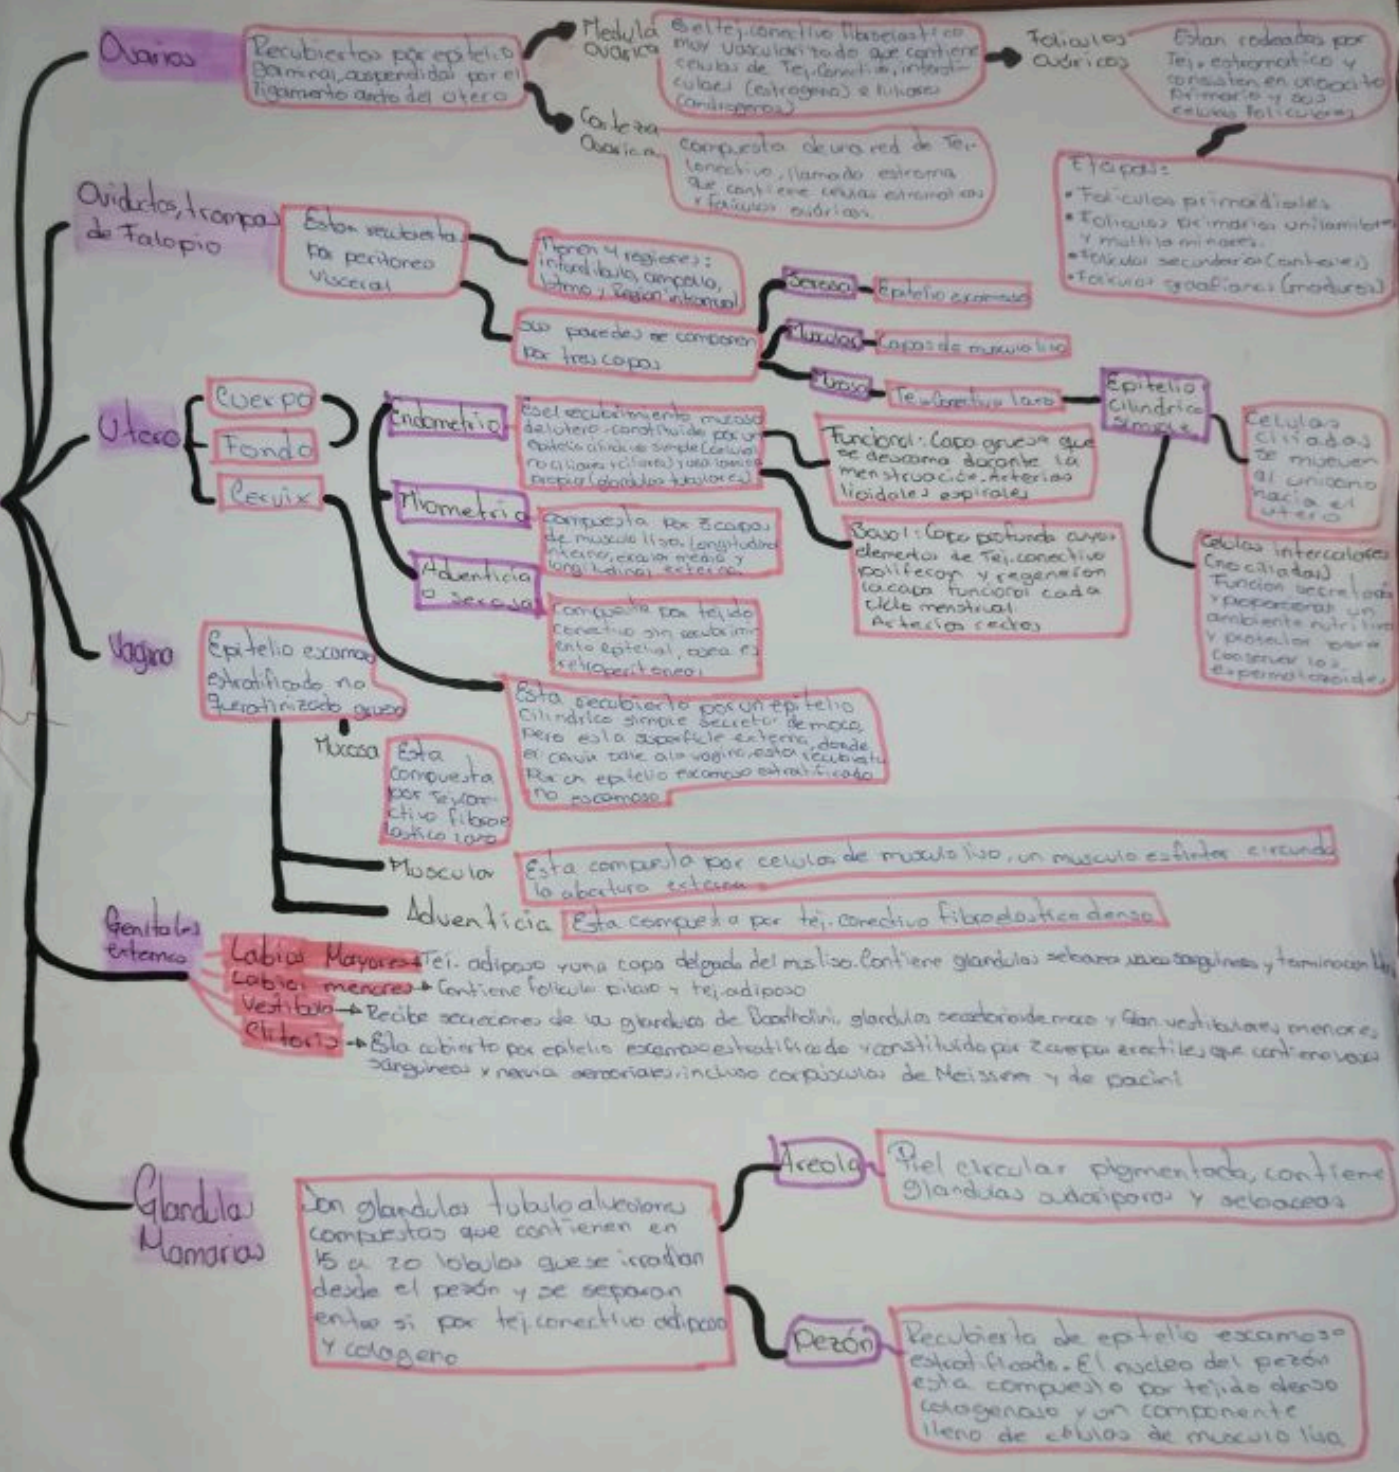 Ovarios
Recubiertos por epitelio
Germinal, suspendidas por el
ligamento ancho del utero
Medula
Ovarica
Es el tej. conectivo fibroelastico
muy vascularizado que contiene
celulas de Tej. Conectivo, intersti-
culares (estrogeno) e hiliares
(androgenos)
Foliculos
ováricos
Estan rodeados por
Tej. estromatico y
consisten en un oocito
primario y sus
celulas foliculares
Corteza
Ovarica
compuesta de una red de Tej.
conectivo, llamado estroma
que contiene celulas estromaticas
y foliculos ováricos.
Etapas:
• Foliculos primordiales
• Foliculos primarios unilaminares
y multilaminares.
• Foliculos secundarios (antrales)
• Foliculos graafianos (maduros)
Oviductos, trompas
de Falopio
Estan recubierta
por peritoneo
visceral
Tienen 4 regiones:
infundibulo, ampolla,
Istmo y Region intramural
sus paredes se componen
por tres capas
Serosa
Epitelio escamoso
Muscular
Capas de musculo liso
Mucosa
Tej. Conectivo laxo
Epitelio
cilindrico
simple
Celulas
ciliadas
se mueven
al unisono
hacia el
utero
Celulas intercalares
(no ciliadas)
Funcion secretora
y proporcionan un
ambiente nutritivo
y protector para
conservar los
espermatozoides
Utero
Cuerpo
Fondo
Cervix
Endometrio
Es el recubrimiento mucoso
del utero. constituido por un
epitelio cilindrico simple (celulas
no ciliares y ciliares) y una lamina
propia (glandulas tubulares)
Funcional: Capa gruesa que
se descama durante la
menstruación. Arterias
licoidales espirales
Basal: Capa profunda cuyos
elementos de Tej. conectivo
poliferan y regeneran
la capa funcional cada
ciclo menstrual.
Arterias rectas
Miometrio
compuesta por 3 capas
de musculo liso, longitudinal
interno, circular media y
longitudinal externa.
Adventicia
o serosa
compuesta por tejido
conectivo sin recubrimi-
ento epitelial, osea es
retroperitoneal
Vagina
Epitelio escamoso
estratificado no
queratinizado grueso
Esta recubierto por un epitelio
cilindrico simple secretor de moco,
pero es la superficie externa, donde
el cervix sale a la vagina, esta recubierta
por un epitelio escamoso estratificado
no escamoso
Mucosa
Esta
compuesta
por Tej. con-
ectivo fibroe
lastico laxo
Muscular
Esta compuesta por celulas de musculo liso, un musculo esfinter circunda
la abertura externa
Adventicia
Esta compuesta por tej. conectivo fibroelastico denso
Genitales
externos
Labios Mayores → Tej. adiposo y una capa delgada del mus liso. Contiene glandulas sebacea vasos sanguineos y terminacion
Labios menores → Contiene foliculo piloso y tej. adiposo
Vestibulo → Recibe secreciones de las glandulas de Bartholini, glandulas secretorios de moco y Glan. vestibulares menores
Clitoris → Esta cubierto por epitelio escamoso estratificado y constituido por 2 cuerpos erectiles, que contiene vasos
sanguineos y nervios sensoriales, incluso corpusculos de Meissern y de pacini
Glandulas
Mamarias
Son glandulas tubulo alveolares
compuestas que contienen en
15 a 20 lobulos que se irradian
desde el pezón y se separan
entre si por tej. conectivo adiposo
y colageno
Areola
Piel circular pigmentada, contiene
glandulas sudoriparas y sebaceas
Pezón
Recubierta de epitelio escamoso
estratificado. El nucleo del pezón
esta compuesto por tejido denso
colagenoso y un componente
lleno de células de musculo liso